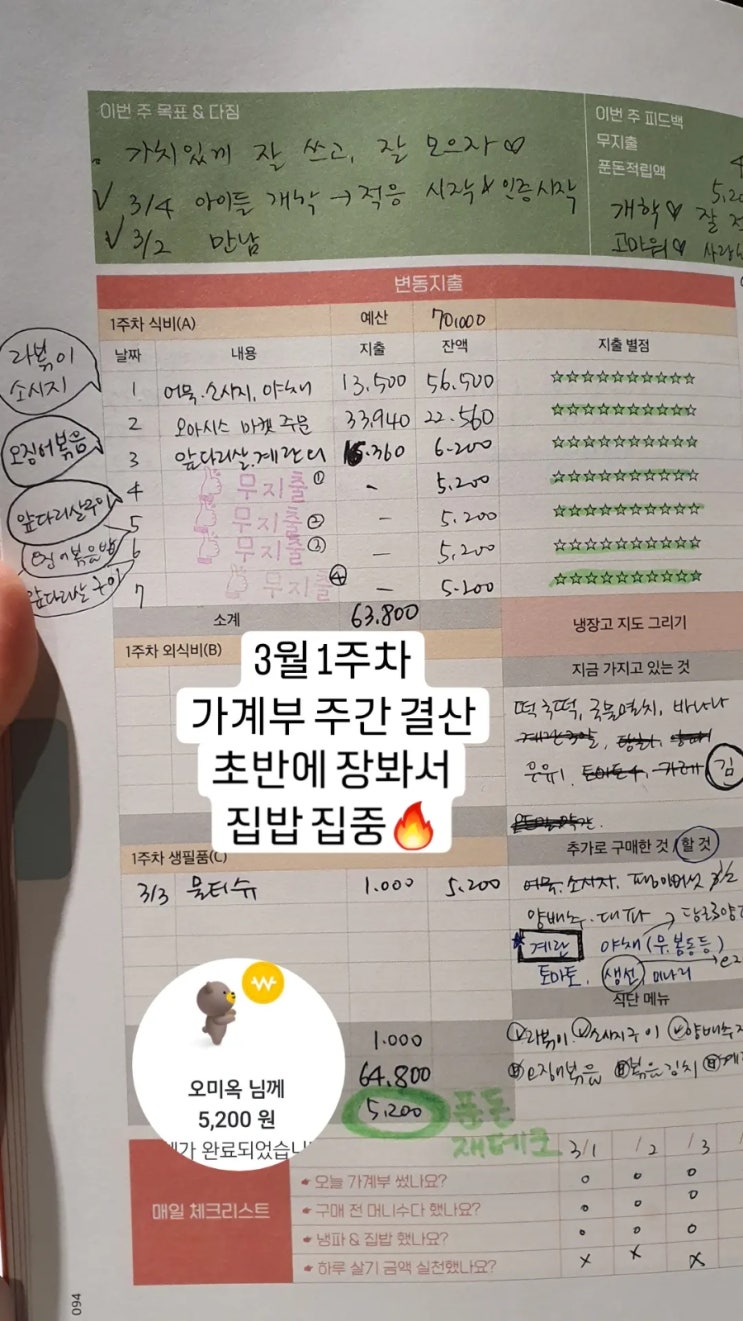 이번 주 목표 & 다짐
가치있게 잘 쓰고, 잘 모으자♡
√ 3/4 아이들 개학 → 적응 시작★인증시작
√ 3/2 만남
이번 주 피드백
무지출 4
푼돈적립액 5,20
개학♡ 잘
고마워♡
변동지출
1주차 식비(A) 예산 70,000
날짜 내용 지출 잔액 지출 별점
라볶이
소시지
1 어묵.소시지, 야채 13,500 56,500 ☆☆☆☆☆☆☆☆☆☆
2 오아시스 마켓 주문 33,940 22,560 ☆☆☆☆☆☆☆☆☆☆
오징어볶음
3 앞다리살.계란 16.360 6.200 ☆☆☆☆☆☆☆☆☆☆
4 무지출 ① - 5,200 ☆☆☆☆☆☆☆☆☆☆
앞다리살구이
5 무지출 ② - 5,200 ☆☆☆☆☆☆☆☆☆☆
6 무지출 ③ - 5,200 ☆☆☆☆☆☆☆☆☆☆
앞다리살 구이
7 무지출 ④ - 5.200 ☆☆☆☆☆☆☆☆☆☆
소계 63.800
냉장고 지도 그리기
1주차 외식비(B)
지금 가지고 있는 것
3월 1주차
가계부 주간 결산
초반에 장봐서
집밥 집중🔥
떡국떡, 국물멸치, 바나나
우유1, 김
추가로 구매한 것 할 것
1주차 생필품(C)
3/3 물티슈 1.000 5.200
어묵.소시지. 팽이버섯 3/2
양배추.대파
★계란 야채(무,봄동등)
토마토. 생선 미나리
식단 메뉴
라볶이. 소시지구이 양배추
볶음김치
1.000
64,800
5,200 푼돈
재테크
오미옥 님께
5,200 원
완료되었습니
매일 체크리스트
3/1 /2 /3
오늘 가계부 썼나요? o o o
구매 전 머니수다 했나요? o o o
냉파 & 집밥 했나요? o o o
하루 살기 금액 실천했나요? x x x
094